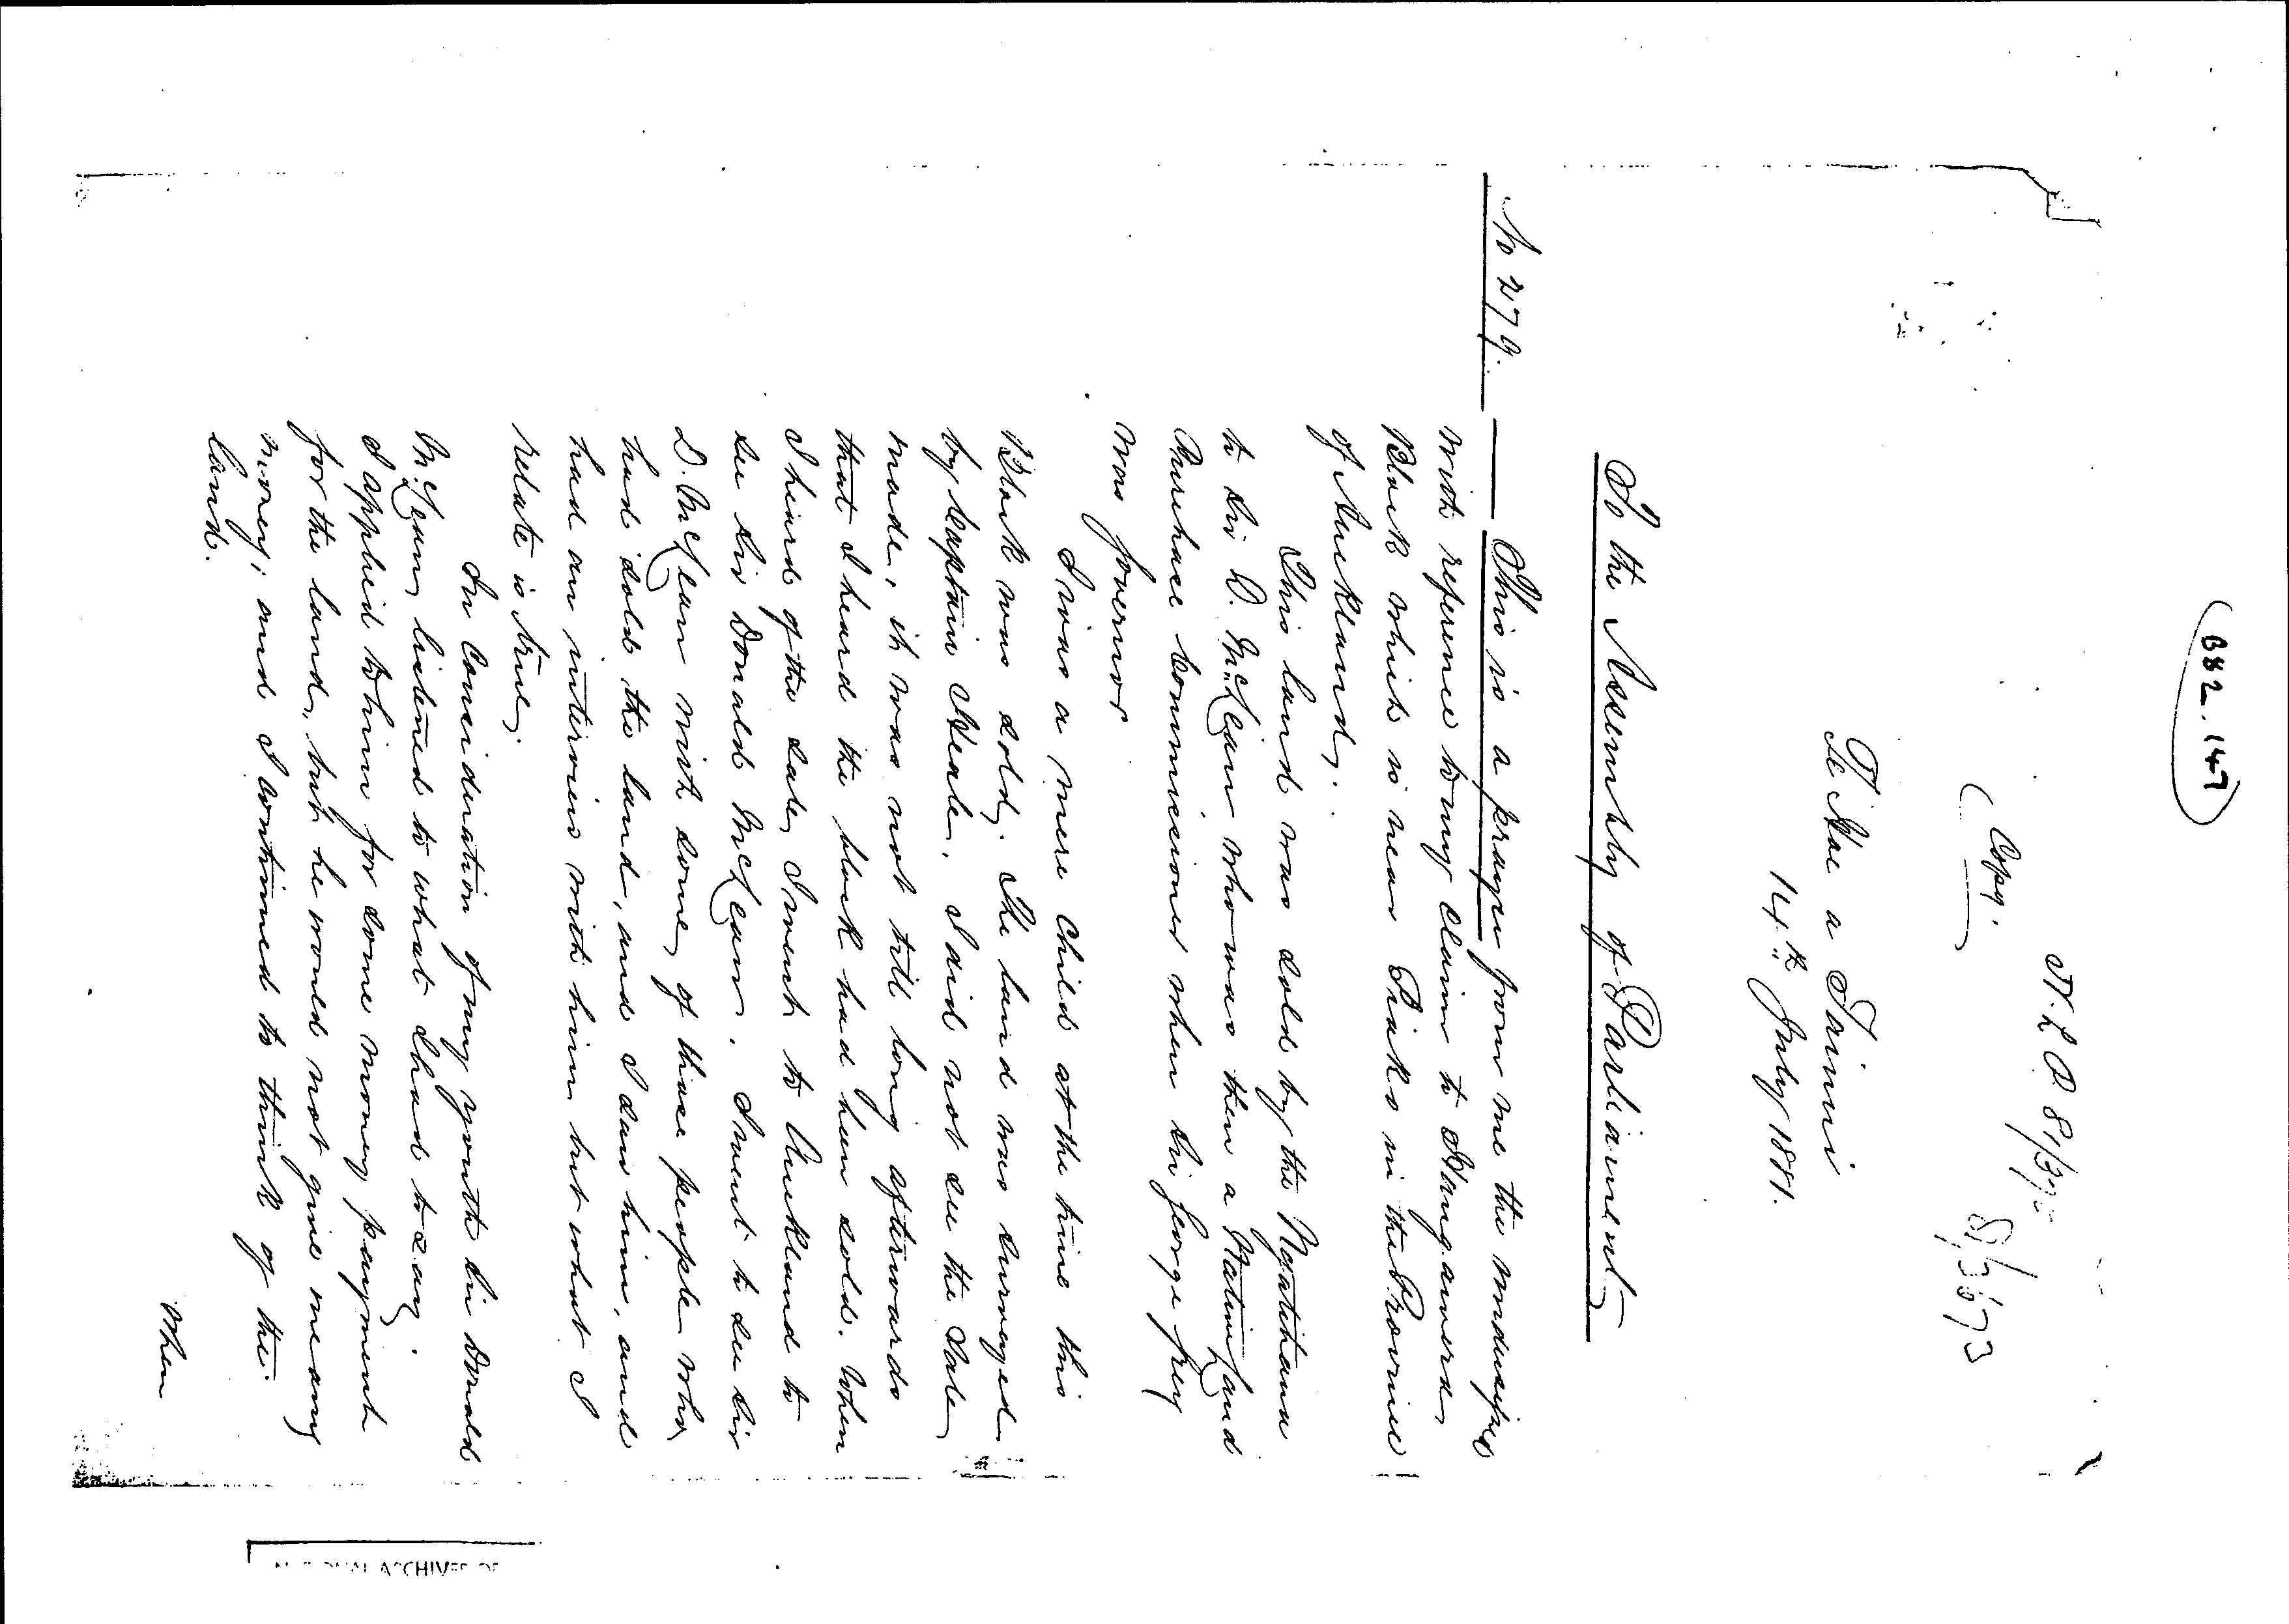 B82.147
N.L.P. 81/373
81/3673
Copy.
Te Hae a Tainui
14th July 1881.
To the Assembly of Parliament
No 279.
This is a prayer from me the undersigned
with reference to my claim to Hangawera
Block which is near Piako in the Province
of Auckland.
This land was sold by the Ngatihaua
to Sir D. McLean who was then a Native Land
Purchase Commissioner when Sir George Grey
was Governor
I was a mere child at the time this
Block was sold. The land was surveyed
by Captain Heale. I did not see the sale
made, it was not till long afterwards
that I heard the block had been sold. When
I heard of the sale I went to Auckland to
see Sir Donald McLean. I went to see Sir
D. McLean with some of those people who
had sold the land, and I saw him, and
had an interview with him but what I
relate is true.
In consideration of my youth Sir Donald
McLean listened to what I had to say.
I applied to him for some money payment
for the land, but he would not give me any
money; and I continued to think of the
land.
When
ARCHIVES OF